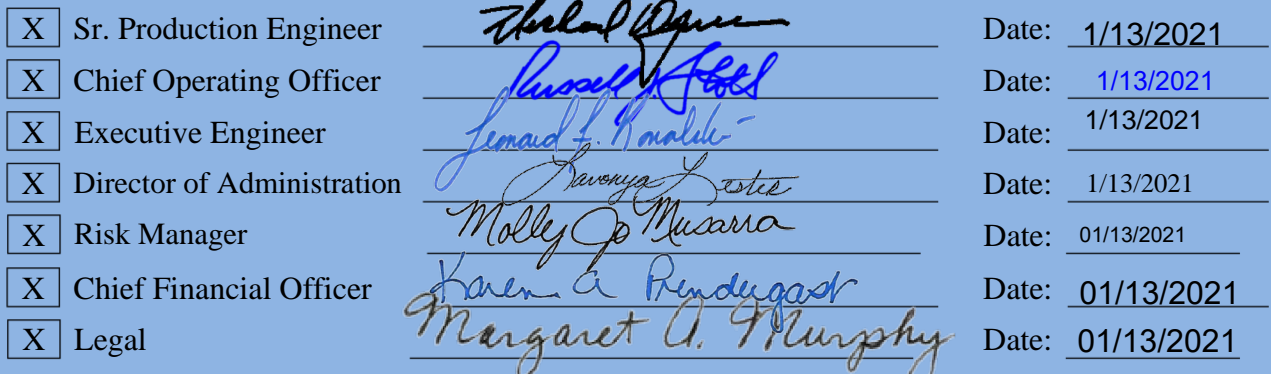 X Sr. Production Engineer Date: 1/13/2021
X Chief Operating Officer Russell J Stoll Date: 1/13/2021
X Executive Engineer Leonard F. Date: 1/13/2021
X Director of Administration Lavonya Lester Date: 1/13/2021
X Risk Manager Molly Jo Musarra Date: 01/13/2021
X Chief Financial Officer Karen A Prendergast Date: 01/13/2021
X Legal Margaret A. Murphy Date: 01/13/2021